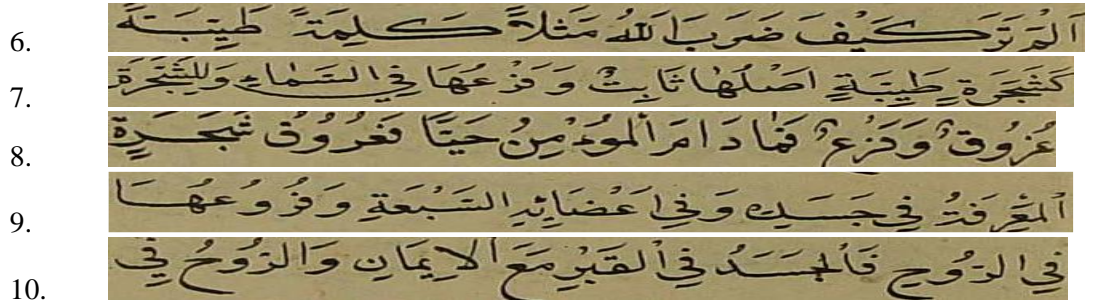 6. اَلَمْ تَرَ كَيْفَ ضَرَبَ اللهُ مَثَلاً كَلِمَةً طَيِّبَةً
7. كَشَجَرَةٍ طَيِّبَةٍ اَصْلُهَا ثَابِتٌ وَفَرْعُهَا فِي السَّمَاءِ وَلِلشَّجَرَةِ
8. عُرُوقٌ وَفَرْعٌ فَمَا دَامَ الْمُؤْمِنُ حَيًّا فَعُرُوقُ شَجَرَةِ
9. الْمَعْرِفَةُ فِي جَسَدِهِ وَفِي اَعْضَائِهِ السَّبْعَةِ وَفُرُوعُهَا
10. فِي الرُّوحِ فَالْجَسَدُ فِي الْقَبْرِ مَعَ الْاِيمَانِ وَالرُّوحُ فِي